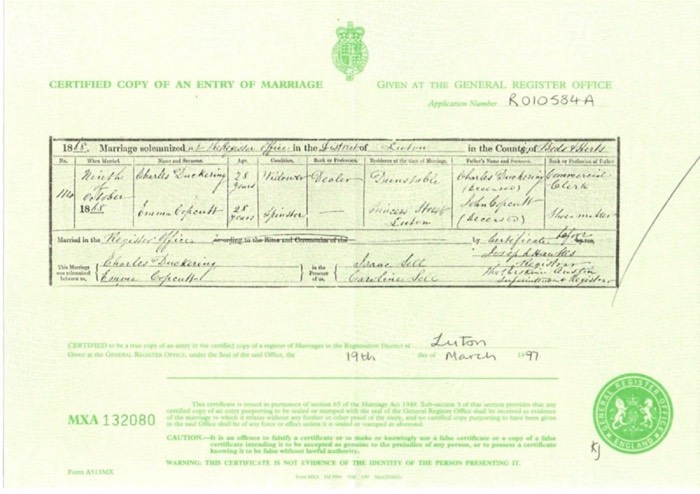 CERTIFIED COPY OF AN ENTRY OF MARRIAGE
GIVEN AT THE GENERAL REGISTER OFFICE
Application Number R010584A
1868. Marriage solemnized at the Register Office in the District of Luton in the County of Beds & Herts
No. When Married. Name and Surname. Age. Condition. Rank or Profession. Residence at the time of Marriage. Father's Name and Surname. Rank or Profession of Father
Ninth of October 1868
Charles Duckering 28 years Widower Dealer Dunstable Charles Duckering (deceased) Commercial Clerk
Emma Copcutt 28 years Spinster — Princess Street Luton John Copcutt (deceased)
Married in the Register Office according to the Rites and Ceremonies of the by Certificate before me,
This Marriage was solemnized between us, Charles Duckering Emma Copcutt in the Presence of us, Isaac Sell Caroline Sell
Joseph Hawkes Registrar
Superintendent Registrar
CERTIFIED to be a true copy of an entry in the certified copy of a register of Marriages in the Registration District of Luton
Given at the GENERAL REGISTER OFFICE, under the Seal of the said Office, the 19th day of March 1997
This certificate is issued in pursuance of section 65 of the Marriage Act 1949. Sub-section 3 of that section provides that any
certified copy of an entry purporting to be sealed or stamped with the seal of the General Register Office shall be received as evidence
of the marriage to which it relates without any further or other proof of the entry, and no certified copy purporting to have been given
in the said Office shall be of any force or effect unless it is sealed or stamped as aforesaid.
MXA 132080
CAUTION.—It is an offence to falsify a certificate or to make or knowingly use a false certificate or a copy of a false
certificate intending it to be accepted as genuine to the prejudice of any person, or to possess a certificate
knowing it to be false without lawful authority.
WARNING: THIS CERTIFICATE IS NOT EVIDENCE OF THE IDENTITY OF THE PERSON PRESENTING IT.
Form A513MX
GENERAL REGISTER OFFICE
ENGLAND
KJ